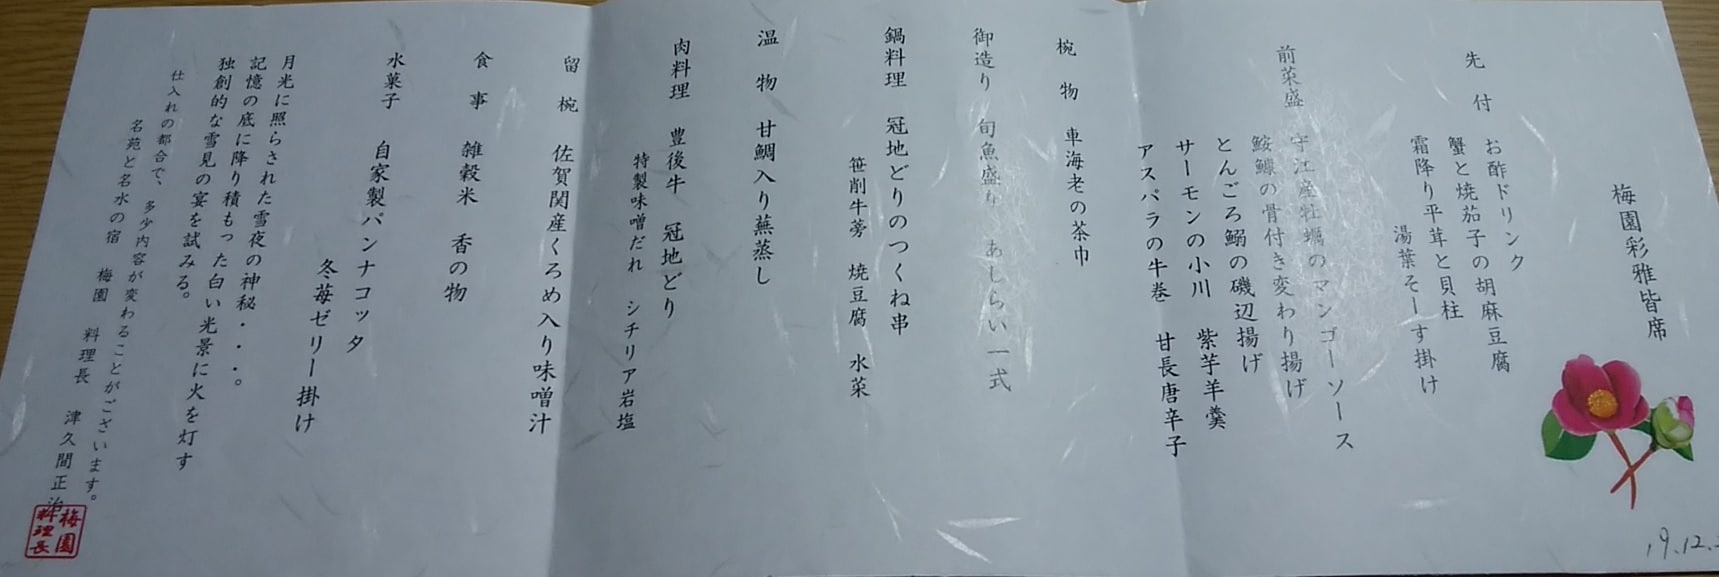 梅園彩雅皆席
先付 お酢ドリンク
蟹と焼茄子の胡麻豆腐
霜降り平茸と貝柱
湯葉そーす掛け
前菜盛 守江産牡蠣のマンゴーソース
鮟鱇の骨付き変わり揚げ
とんごろ鰯の磯辺揚げ
サーモンの小川 紫芋羊羹
アスパラの牛巻 甘長唐辛子
椀物 車海老の茶巾
御造り 旬魚盛り あしらい一式
鍋料理 冠地どりのつくね串
笹削牛蒡 焼豆腐 水菜
温物 甘鯛入り蕪蒸し
肉料理 豊後牛 冠地どり
特製味噌だれ シチリア岩塩
留椀 佐賀関産くろめ入り味噌汁
食事 雑穀米 香の物
水菓子 自家製パンナコッタ
冬苺ゼリー掛け
月光に照らされた雪夜の神秘・・・。
記憶の底に降り積もった白い光景に火を灯す
独創的な雪見の宴を試みる。
仕入れの都合で、多少内容が変わることがございます。
名苑と名水の宿 梅園 料理長 津久間正治
梅園
料理長
19.12.